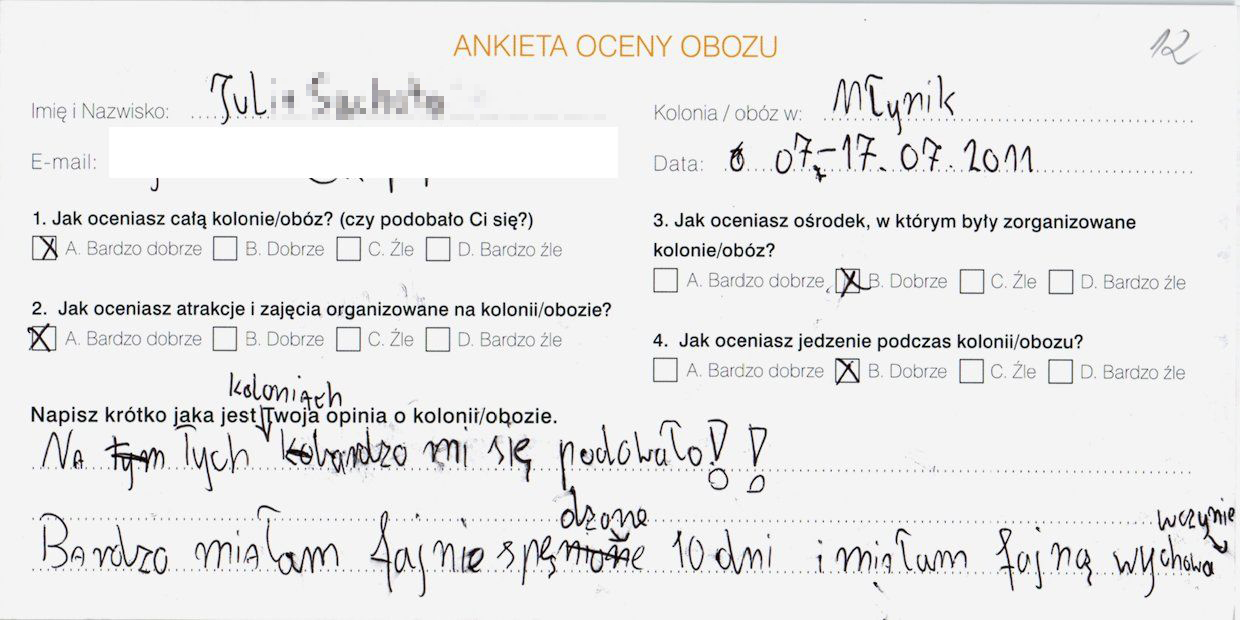 ANKIETA OCENY OBOZU
12
Imię i Nazwisko: Jul
Kolonia / obóz w: Młynik
E-mail:
Data: 07.-17.07.2011
1. Jak oceniasz całą kolonie/obóz? (czy podobało Ci się?)
X A. Bardzo dobrze B. Dobrze C. Źle D. Bardzo źle
2. Jak oceniasz atrakcje i zajęcia organizowane na kolonii/obozie?
X A. Bardzo dobrze B. Dobrze C. Źle D. Bardzo źle
3. Jak oceniasz ośrodek, w którym były zorganizowane
kolonie/obóz?
A. Bardzo dobrze X B. Dobrze C. Źle D. Bardzo źle
4. Jak oceniasz jedzenie podczas kolonii/obozu?
A. Bardzo dobrze X B. Dobrze C. Źle D. Bardzo źle
Napisz krótko jaka jest Twoja opinia o kolonii/obozie.
koloniach
Na tym łych bardzo mi się podobało!!
dzone wczynie
Bardzo miałam fajnie spę 10 dni i miałam fajną wychowa